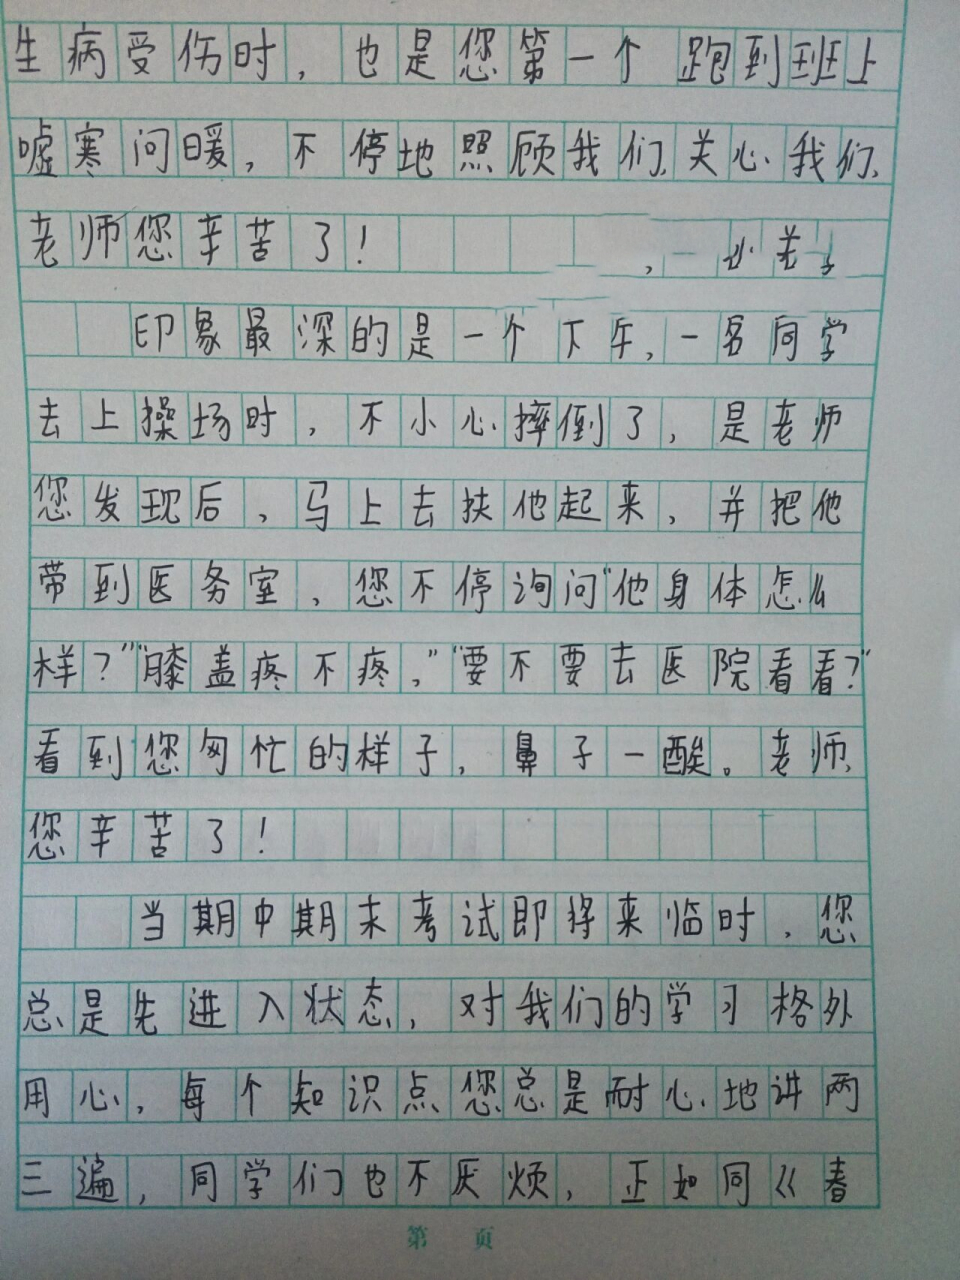 生病受伤时，也是您第一个跑到班上
嘘寒问暖，不停地照顾我们，关心我们，
老师您辛苦了！
印象最深的是一个下午，一名同学
去上操场时，不小心摔倒了，是老师
您发现后，马上去扶他起来，并把他
带到医务室，您不停询问“他身体怎么
样？”“膝盖疼不疼，”“要不要去医院看看？”
看到您匆忙的样子，鼻子一酸。老师，
您辛苦了！
当期中期末考试即将来临时，您
总是先进入状态，对我们的学习格外
用心，每个知识点您总是耐心地讲两
三遍，同学们也不厌烦，正如同《春
第 页